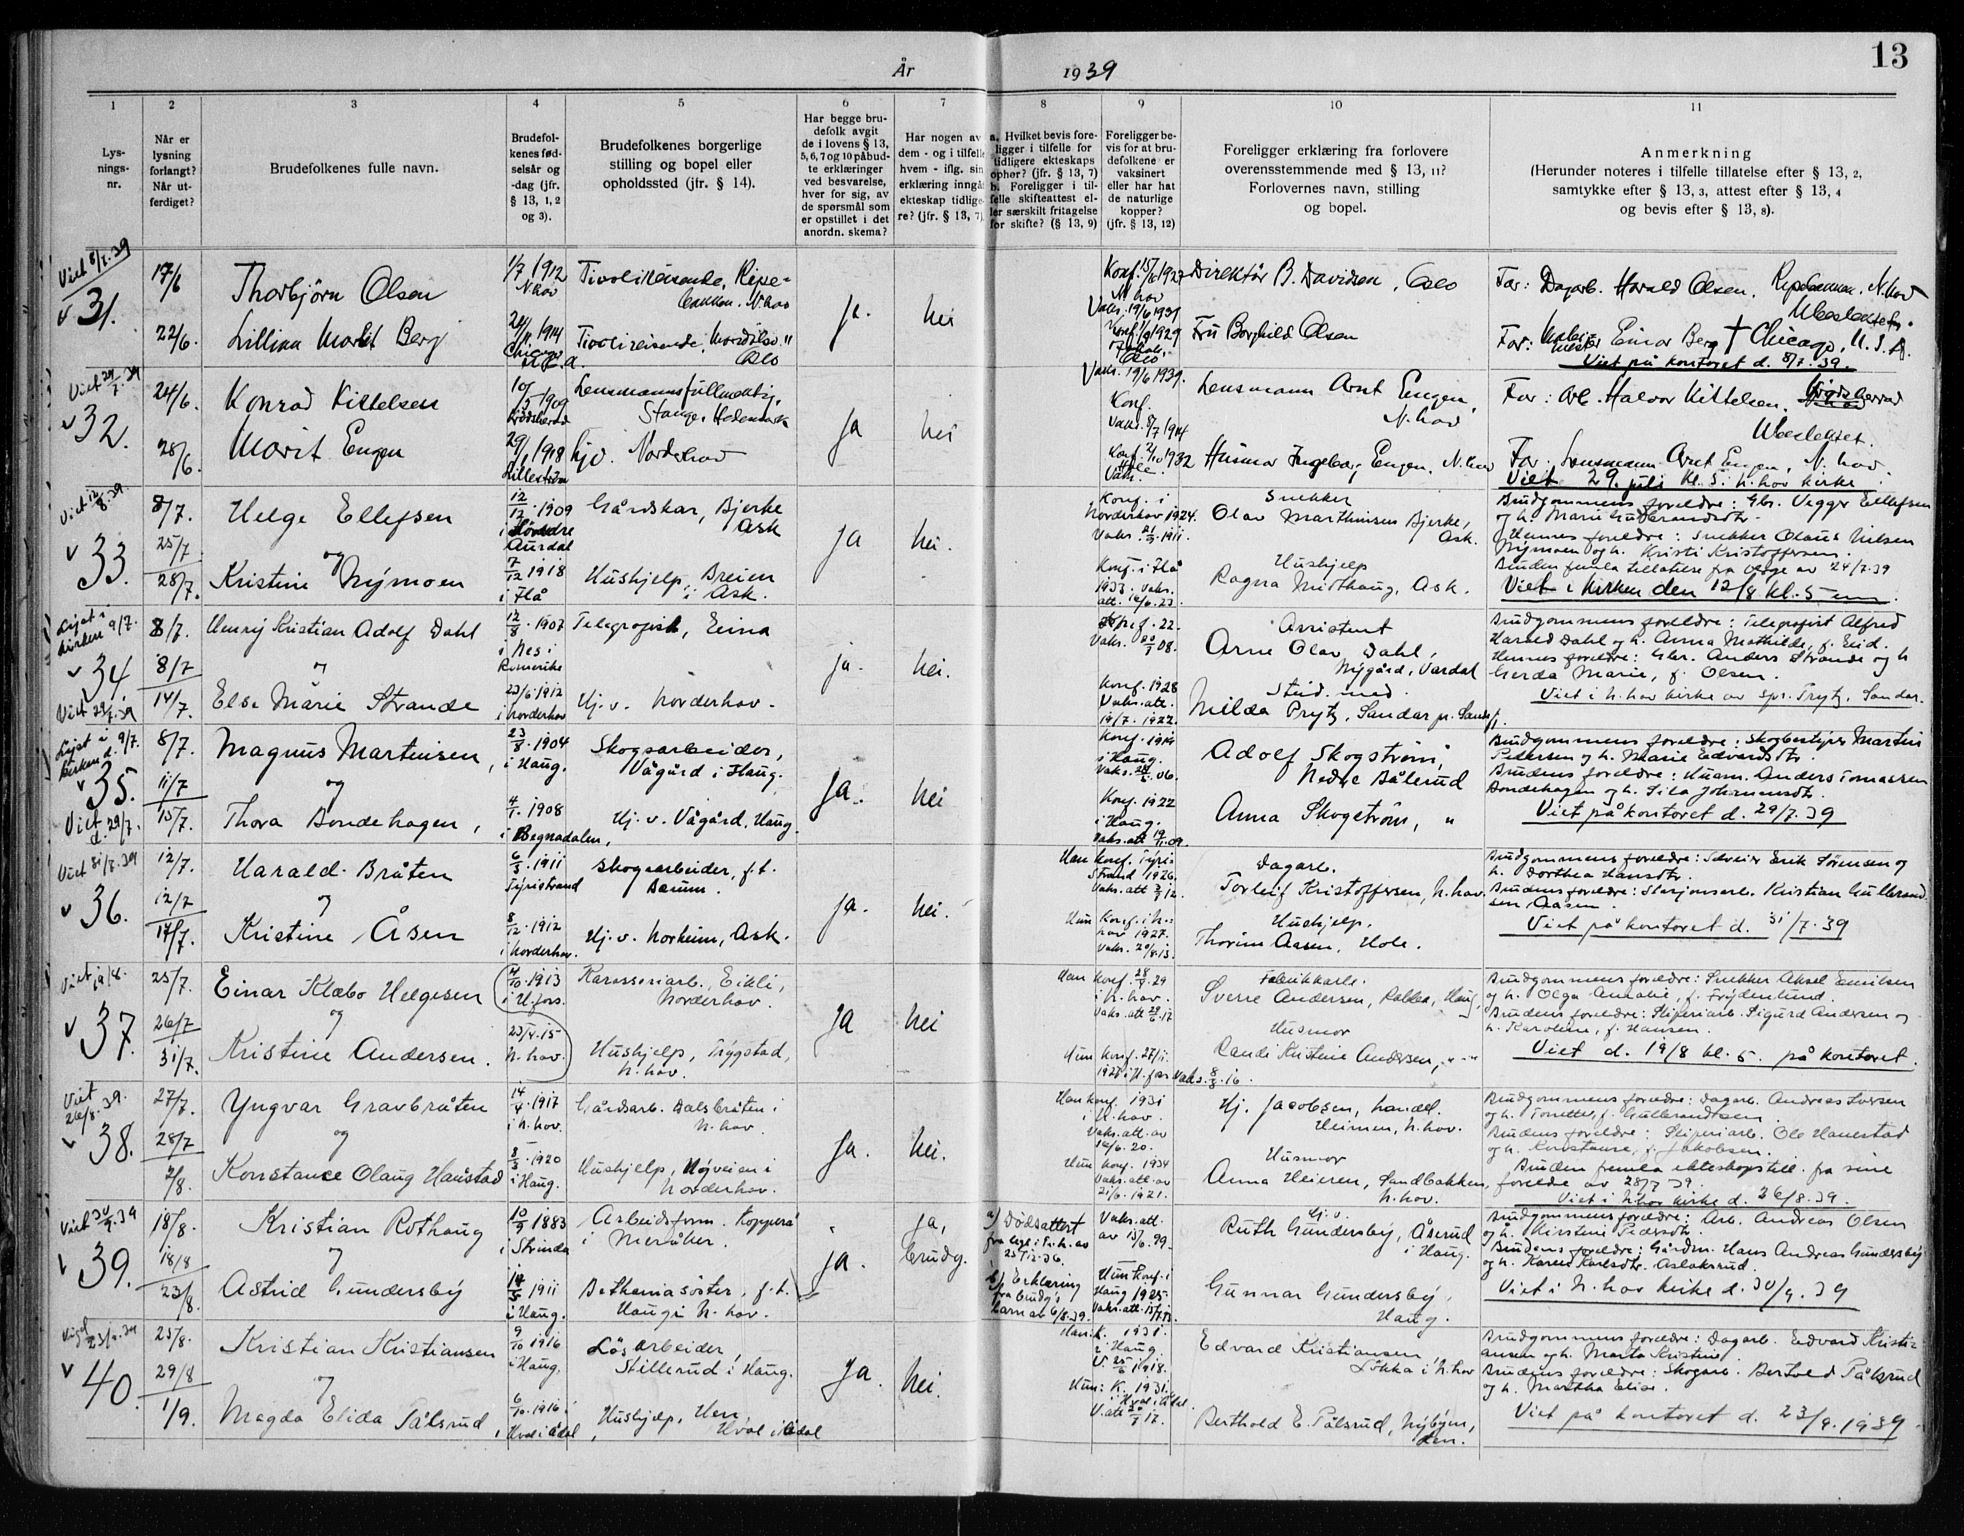 13
År 1939
1 2 3 4 5 6 7 8 9 10 11
Lys-
nings-
nr.
Når er
lysning
forlangt?
Når ut-
ferdiget?
Brudefolkenes fulle navn.
Brudefol-
kenes fød-
selsår og
-dag (jfr.
§ 13, 1, 2
og 3).
Brudefolkenes borgerlige
stilling og bopel eller
opholdssted (jfr. § 14).
Har begge bru-
defolk avgit
de i lovens § 13,
5, 6, 7 og 10 påbud-
te erklæringer
ved besvarelse,
hver for sig, av
de spørsmål som
er opstillet i det
anordn. skema?
Har nogen av
dem - og i tilfelle
hvem - iflg. sin
erklæring inngår
ekteskap tidlige-
re? (jfr. § 13, 7)
a. Hvilket bevis fore-
ligger i tilfelle for
tidligere ekteskaps
ophør? (jfr. § 13, 7)
b. Foreligger i til-
felle skifteattest el-
ler særskilt fritagelse
for skifte? (§ 13, 9)
Foreligger be-
vis for at bru-
defolkene er
vaksinert
eller har hat
de naturlige
kopper?
(jfr. § 13, 12)
Foreligger erklæring fra forlovere
overensstemmende med § 13, 11?
Forlovernes navn, stilling
og bopel.
Anmerkning
(Herunder noteres i tilfelle tillatelse efter § 13, 2,
samtykke efter § 13, 3, attest efter § 13, 4
og bevis efter § 13, 8).
Viet 8/7.39
v 31.
17/6
22/6.
Thorbjörn Olsen
Lillian Marit Berg
1/7 1912
N.hov
1914
Chicago
Tivolireisende, Ripe-
bakken. N.hov
Tivolireisende,
Oslo
ja.
nei
N hov
Vaks. 19/6 1939
Oslo
Vaks. 19/6 1939.
Direktör B. Davidsen, Oslo
Fru Borghild Olsen
Far: Dagarb. Harald Olsen, N.hov
Ubeslektet.
Far: Einar Berg † Chicago, U.S.A.
Viet på kontoret d. 8/7.39.
Viet 29/7.39
v 32.
24/6.
28/6.
Konrad Kittelsen
Marit Engen
1909
Krödsherad
29/ 1918
Lilleström
Lensmannsfullmektig,
Stange, Hedemark
hjv. Norderhov
ja
nei
Konf.
Vaks. 8/7 1914
Konf. 2/10 1932
Hole
Vaks.
Lensmann Arnt Engen,
N. hov
Husmor Ingeborg Engen, N.hov
Far: Arb. Halvor Kittelsen, Krödsherad
Ubeslektet.
Far: Lensmann Arnt Engen, N. hov.
Viet 29. juli kl. 5 i N. hov kirke
Viet 12/8.39
v 33.
8/7.
25/7
28/7.
Helge Ellefsen
og
Kristine Nymoen
12/12 1909
Aurdal
7/12 1918
i Flå
Gårdskar, Bjerke
Ask
Hushjelp, Breien
i Ask.
ja
nei.
Konf. i
Norderhov 1924.
Vaks. 1911.
Konf. i Flå
1933. Vaks.
att. 16/6.23.
Snekker
Olav Marthinsen Bjerke,
Ask.
Hushjelp
Ragna Midthaug, Ask.
Brudgommens foreldre: Gbr. Vegger Ellefsen
og h. Marie Gulbrandsdtr.
Hennes foreldre: Snekker Olaus Nilsen
Nymoen og h. Kristi Kristoffersen.
Bruden femla tillatelse fra verge av 24/7.39
Viet i kirken den 12/8 kl. 5 em.
Lyst i
kirken 9/7.
v 34.
Viet 29/7.39
8/7.
8/7
14/7.
Henrij Kristian Adolf Dahl
og
Else Marie Strande
12/8 1907
i Nes i
Romerike
23/6.1912
i Norderhov
Telegrafist, Eina
Hj. v. Norderhov.
ja.
nei.
Vaks. 08.
Konf. 1928
Vaks. att.
19/7. 1922.
Assistent
Arne Olav Dahl,
Nygård, Vardal
Stud. med.
Milda Prytz, Sandar pr. Sandefj.
Brudgommens foreldre: Telegrafist Alfred
Harald Dahl og h. Anna Mathilde, f. Eid.
Hennes foreldre: Gbr. Anders Strande og h
Gerda Marie, f. Olsen.
Viet i N.hov kirke av spr. Prytz, Sandar.
Lyst i
kirken d. 9/7.
v 35.
Viet
d. 29/7.
8/7.
11/7
15/7.
Magnus Martinsen,
og
Thora Bondehagen,
23/8 1904
i Haug.
4/ 1908
i Begnadalen,
Skogsarbeider,
Vågård i Haug.
Hj. v. Vågård, Haug.
ja.
nei
Konf. 1919
i Haug.
Vaks. 06.
Konf. 1922
i Haug.
Vaks. att 09.
Adolf Skogström,
Nedre Bålerud
Anna Skogström, "
Brudgommens foreldre: Skogbestyrer Martin
Pedersen og h. Marie Edvardsdtr.
Brudens foreldre: Husm. Anders Tomassen
Bondehagen og h. Sila Johannesdtr.
Viet på kontoret d. 29/7.39
Viet 31/7.39
v 36.
12/7.
12/7
17/7.
Harald Bråten
og
Kristine Åsen
6/3 1911
Tyristrand
8/12 1912
i Norderhov.
Skogsarbeider, f.t.
Bærum.
Hj. v. Norheim, Ask.
ja.
nei.
Han konf. Tyri-
strand 1926.
Vaks. att 12.
Hun konf. i N.-
hov 1927.
Vaks. 20/8.13.
Dagarb.
Torleif Kristoffersen, N.hov.
Hushjelp.
Thorine Aasen, Hole.
Brudgommens foreldre: Erik Sørensen og
h. Dorthea Hansdtr.
Brudens foreldre: Stasjonsarb. Kristian Gulbrand-
sen Aasen.
Viet på kontoret d. 31/7.39
Viet 19/8.
v 37.
25/7.
26/7
31/7.
Einar Klæbo Helgesen
og
Kristine Andersen.
1913
i H.fors.
23/4.15
N.hov.
Karosseriarb., Eikli,
Norderhov.
Hushjelp, Trygstad,
N.hov.
ja
nei
Han konf. 29
i N.hov.
Vaks. att 17
Hun konf.
Vaks. 8/3.16.
Fabrikkarb.
Sverre Andersen, Haug,
Husmor
Randi Kristine Andersen, "-"
Brudgommens foreldre: Snekker Aksel Emilsen
og h. Olga Amalie, f. Frydenlund.
Brudens foreldre: Sliperiarb. Sigurd Andersen og
h. Karoline, f. Hansen.
Viet d. 19/8 kl. 5. på kontoret.
Viet
26/8.39.
v 38.
27/7.
28/7
2/8.
Yngvar Gravbråten
og
Konstance Olaug Haustad
14/4 1917
i N.hov.
8/3 1920
i Haug.
Gårdsarb. Dalsbråten i
N.hov.
Hushjelp, i
Norderhov.
ja.
nei.
Han konf. 1931
i N.hov.
Vaks. att. av
16/6.20.
Hun konf. 1934
Vaks. att. av
21/6.1921.
Hj. Jacobsen, handel.
Heimen, N.hov.
Husmor
Anna Heieren, Sandbakken,
N.hov.
Brudgommens foreldre: Dagarb. Andreas Iversen
og h. Tonette, f. Gulbrandsen.
Brudens foreldre: Sliperiarb. Ole Hanestad
og h. Konstanse, f. Jakobsen.
Bruden femla ekteskapstill. fra sine
foreldre av 28/7 39.
Viet i N.hov kirke d. 26/8.39.
Viet 30/9.39
v 39.
18/8.
18/8
23/8.
Kristian Rothaug
og
Astrid Gundersby
10/9 1883
i Strinda
14/5 1911
i Haug.
Arbeidsform. Kopperå
i Meråker.
Bethaniasöster, f.t.
Haug i N.hov.
ja.
ja,
brudg.
a) Dødsattest
b) Erklæring
fra brudg's
barn av 6/8.39.
Vaks. att.
av 15/6.99.
Hun konf. i
Haug 1925.
Hj.v.
Ruth Gundersby, Åserud
i Haug.
Gunnar Gundersby,
Haug.
Brudgommens foreldre: Arb. Andreas Olsen
og h. Kirstine Pedersdtr.
Brudens foreldre: Gårdm. Hans Andreas Gundersby
og h. Karen Karlsdtr. Aslaksrud.
Viet i N.hov kirke d. 30/9.39
23/9.39
v 40.
25/8.
29/8
1/9.
Kristian Kristiansen
og
Magda Elida Pålsrud,
9/10 1916
i Haug.
6/10.1916 i
Hval i Ådal
Løsarbeider,
Stillerud i Haug.
Hushjelp, Hen
Hval i Ådal
ja.
nei.
Han: K. 1931.
i Haug.
V. 1918.
Hun: K. 1931.
V. att 17.
Edvard Kristiansen
Løkka i N.hov
Berthold E. Pålsrud, Nybyen,
Hen.
Brudgommens foreldre: Dagarb. Edvard Kristi-
ansen og h. Marta Kristine.
Brudens foreldre: Skogarb. Bertold Pålsrud
og h. Martha Elise.
Viet på kontoret d. 23/9.1939